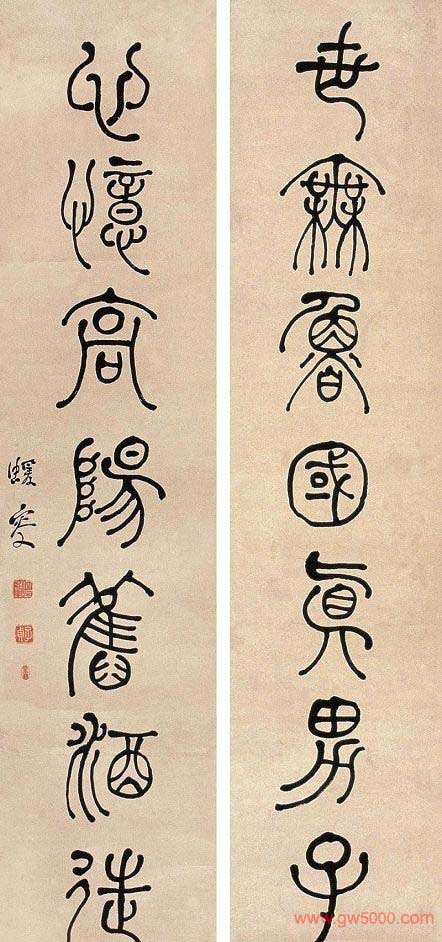 世無魯國真男子
心憶高陽舊酒徒
蝯叟
www.gw5000.com